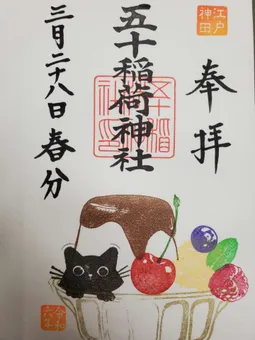 江戸
神田
奉拝
五十稲荷神社
三月二十八日 春分
令和
六年